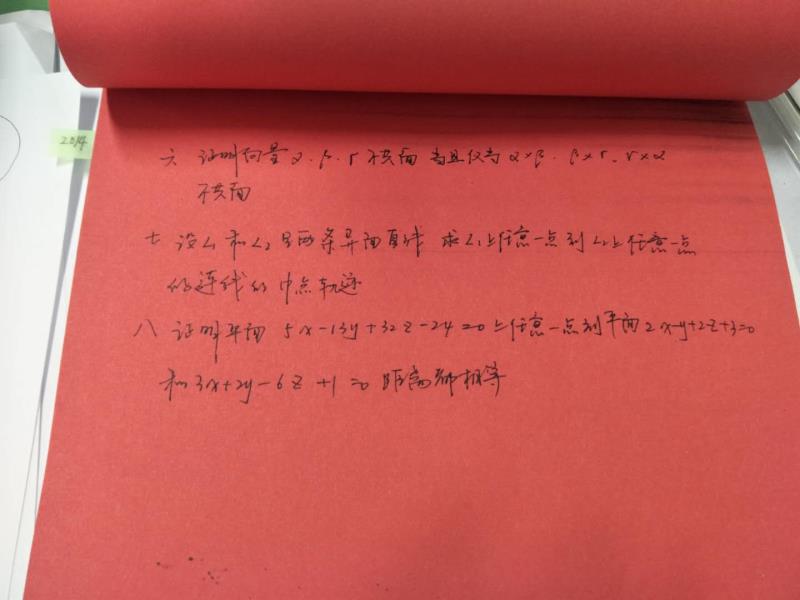 2014
六 证明向量 α、β、γ 不共面 当且仅当 α×β、β×γ、γ×α
不共面
七 设 L₁ 和 L₂ 是两条异面直线 求 L₁ 上任意一点到 L₂ 上任意一点
的连线的中点轨迹
八 证明平面 5x-13y+32z-24=0 上任意一点到平面 2x-y+2z+3=0
和 3x+2y-6z+1=0 距离都相等